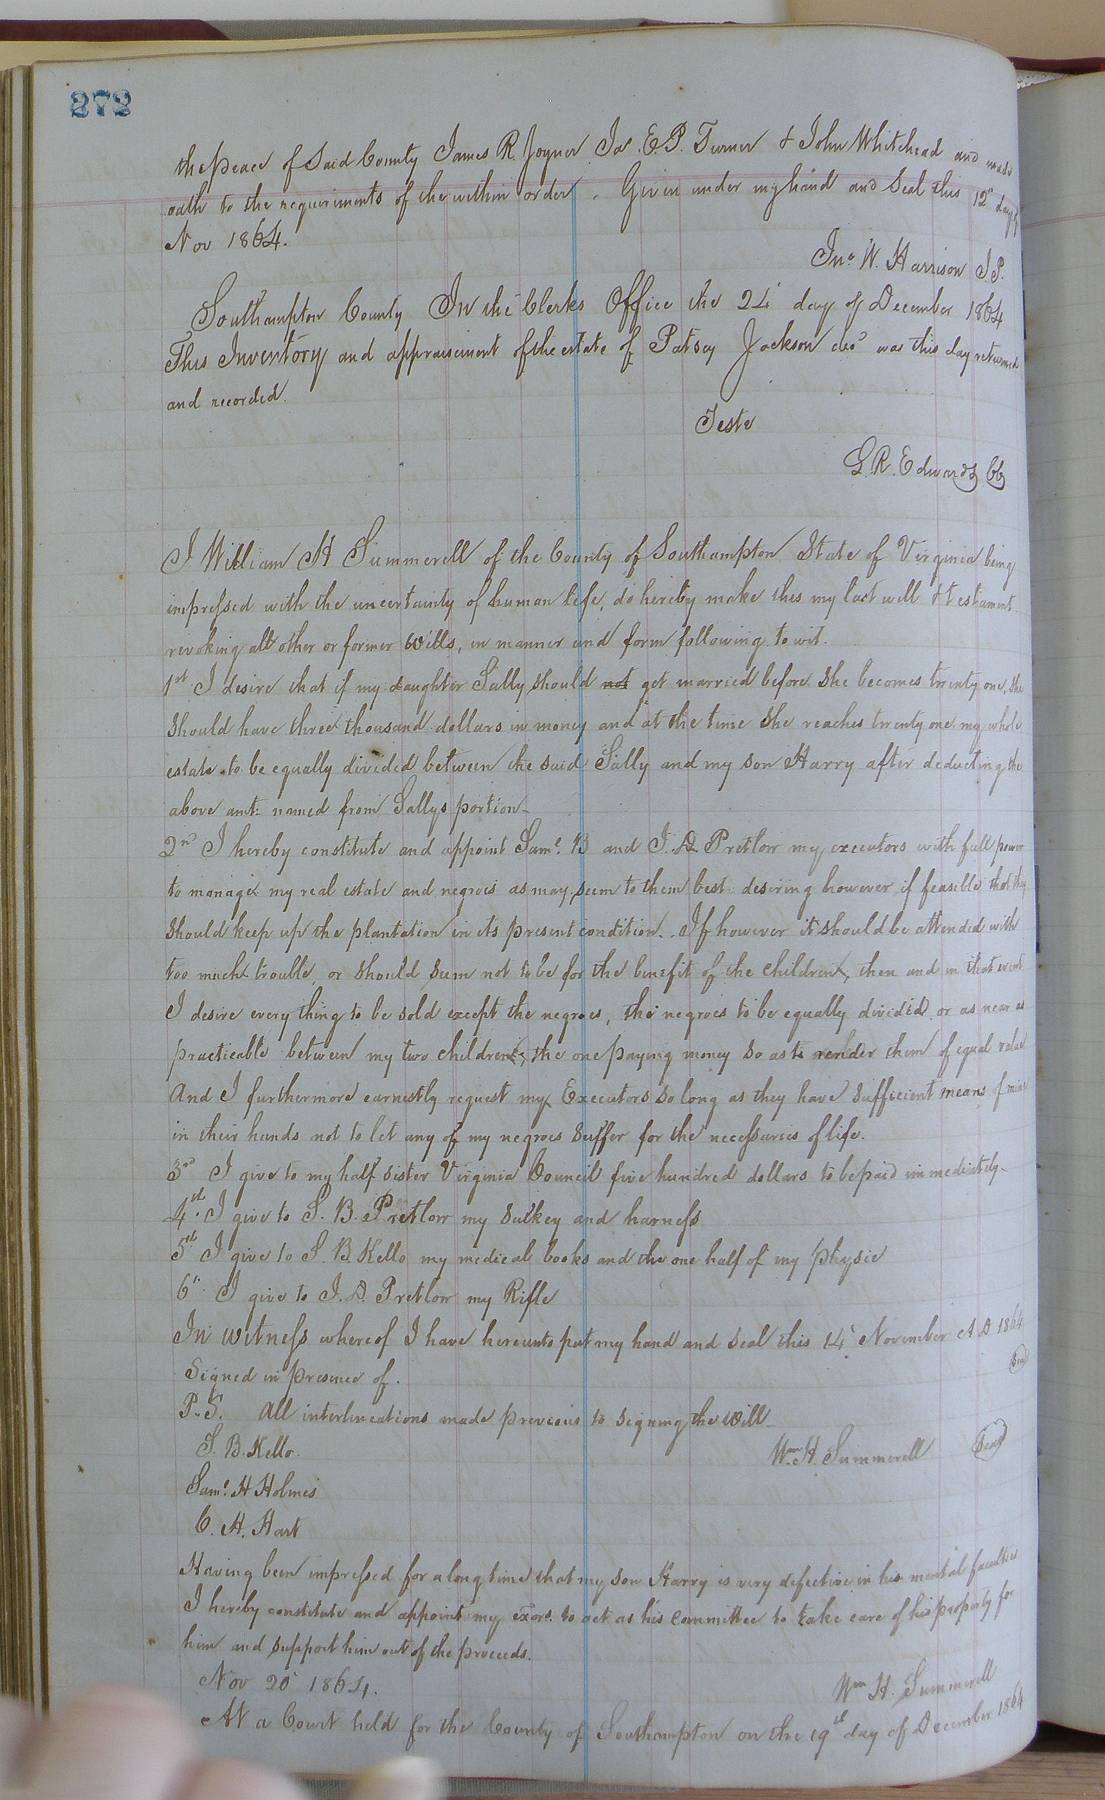 272
the peace of Said County James R. Joyner Jas. E. P. Turner & John Whitehead and made
oath to the requirments of the within order. Given under my hand and Seal this 12th day of
Nov 1864.
Jno. W. Harrison J.P.
Southampton County In the Clerks Office the 24 day of December 1864
This Inventory and appraisement of the estate of Patsey Jackson decd was this day returned
and recorded.
Teste
L. R. Edwards CC
I William H Summerell of the County of Southampton State of Virginia being
impressed with the uncertainty of human life, do hereby make this my last will & testament
revoking all other or former Wills, in manner and form following to wit.
1st I desire that if my daughter Sally should not get married before she becomes twenty one, she
should have three thousand dollars in money and at the time she reaches twenty one my whole
estate to be equally divided between the said Sally and my son Harry after deducting the
above amt: named from Sallys portion.
2nd I hereby constitute and appoint Saml. B and J. D. Pretlow my executors with full power
to manage my real estate and negroes as may seem to them best desiring however if feasible that they
should keep up the plantation in its present condition. If however it should be attended with
too much trouble, or should seem not to be for the benefit of the children, then and in that event
I desire every thing to be sold except the negroes, the negroes to be equally divided or as near as
practicable between my two children, the one paying money so as to render them of equal value
And I furthermore earnestly request my Executors so long as they have sufficient means of mine
in their hands not to let any of my negroes suffer for the necessaries of life.
3rd I give to my half sister Virginia Council five hundred dollars to be paid immediately.
4th. I give to S. B. Pretlow my Sulkey and harness
5th I give to S. B. Kello my medical books and the one half of my physic
6th I give to J. D. Pretlow my Rifle
In witness whereof I have hereunto put my hand and seal this 14th November A D 1864
Signed in presence of.
Seal
P. S. All interlineations made previous to signing the Will
S. B. Kello.
Wm. H. Summerell Seal
Saml. H Holmes
C. H. Hart
Having been impressed for a long time that my son Harry is very defective in his mental faculties
I hereby constitute and appoint my exors. to act as his committee to take care of his property for
him and support him out of the proceeds.
Nov 20th 1864.
Wm H. Summerell
At a Court held for the County of Southampton on the 19th day of December 1864